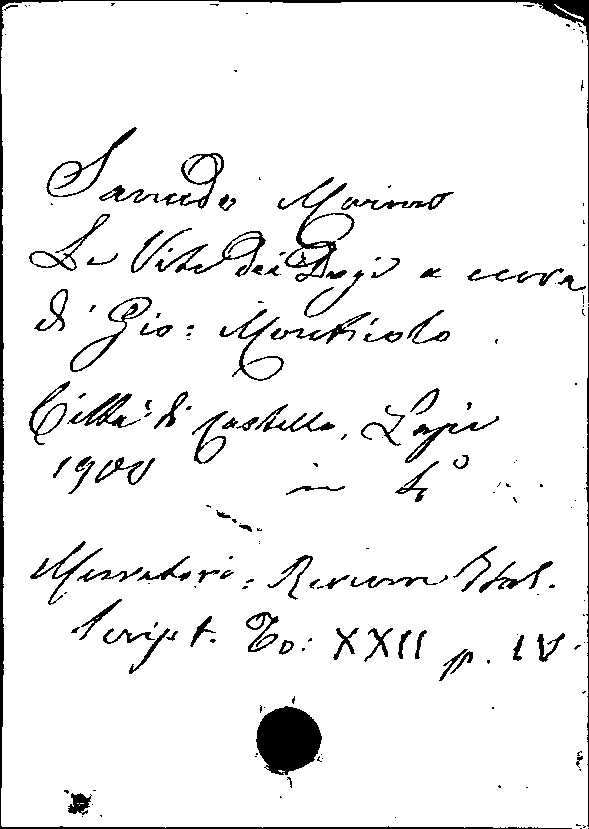 Sanudo Marino
Le Vite dei Dogi a cura
di Gio: Monticolo
Città di Castello, Lapi
1900 in 4°
Muratori: Rerum Ital.
Script. To: XXII p. IV